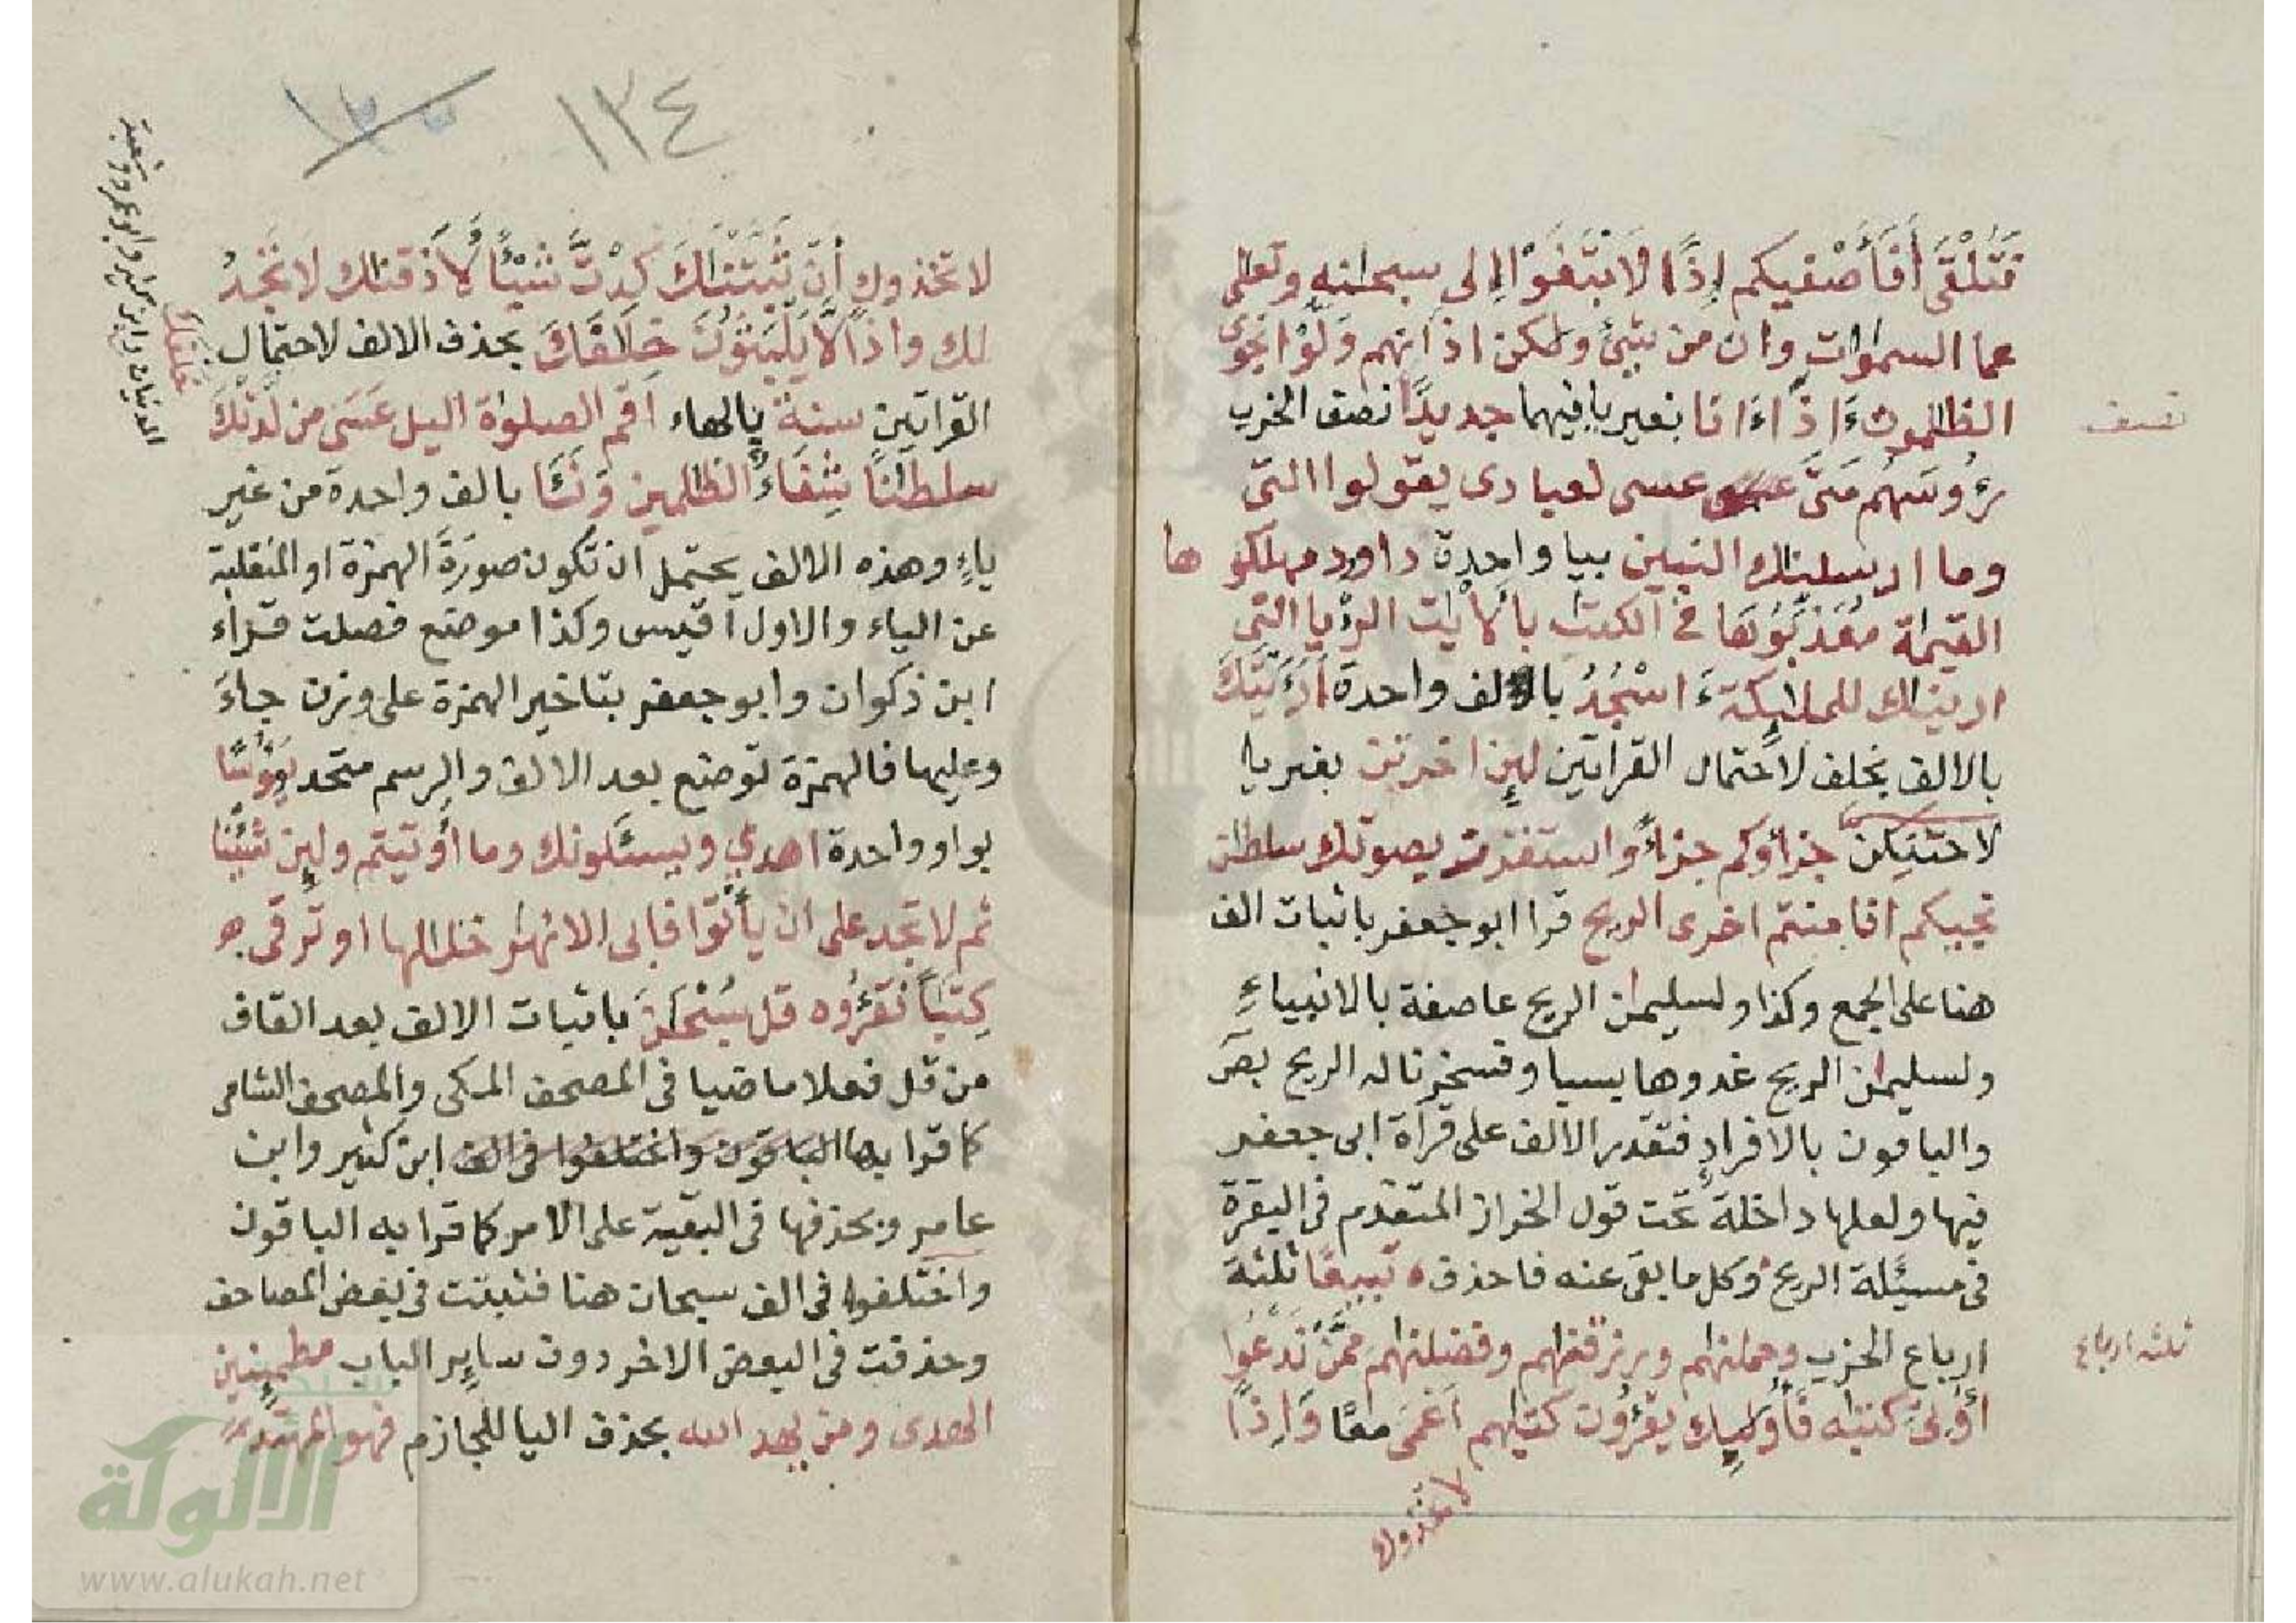 فَتُلْقَى أَفَأَصْفيكم إِذًا لَابْتَغَوْا إلى سبحنه وتعلى
عما السموات وان من شئ ولكن اذانهم وَلَّوْا نجوى
الظلمون ءَاِذَا ءَانا بغير يا فيهما جديدًا نصف الحزب
نصف
رءُوسَهُم مَتَى عسى لعبادى يقولوا التى
وما ارسلنك النبين بيا واحدة داود مهلكوها
القيمة مُعَذِّبُوهَا في الكتب بالأيت الرءيا التى
ارينك للملئكة ءَاسْجُدُ بالف واحدة أَرَءَيْتَكَ
بالالف بخلف لاحتمال القراتين لين اخرتن بغير يا
لاحتنكن جزاؤكم جزاءً واستفزز بصوتك سلطن
نجيكم افامنتم اخرى الريح قرا ابو جعفر باثبات الف
هنا على الجمع وكذا ولسليمن الريح عاصفة بالانبياء
ولسليمن الريح غدوها بسبا وفسخرنا له الريح بصَ
والباقون بالافراد فتقدر الالف على قراة ابى جعفر
فيها ولعلها داخلة تحت قول الخراز المتقدم فى البقرة
فى مسئلة الريح وكل ما بقى عنه فاحذف تبيعًا ثلثة
ارباع الحزب وحملنهم ورزقنهم وفضلنهم ممَّن نَدْعُوا
ثلثه ارباع
أُوتى كتبه فَأُولئِك يقرءُون كتبهم أعمى معًا وَإِذًا
لاتخذوك
١٣٤
لاتخذوك أن ثَبَّتْنَكَ كِدْتَّ شَيْئًا لَّأَذقنك لا تَجِدُ
لك واذًا لَّا يَلْبَثُونَ خِلَفَكَ بحذف الالف لاحتمال
القراتين سنة بالهاء اقم الصلوة اليل عَسَى من لَّدُنْكَ
سلطنًا شِفَاءٌ الظلمين وَنَـَٔا بالف واحدة من غير
ياءٍ وهذه الالف يحتمل ان تكون صورَةَ الهمزة او المنقلبة
عن الياء والاول اقيس وكذا موضع فصلت قراء
ابن ذكوان وابو جعفر بتاخير الهمزة على وزن جاءَ
وعليها فالهمزة توضع بعد الالف والرسم متحد يَؤُسًا
بواو واحدة اهدى ويسئلونك وما أُوتيتم ولين شئنا
ثم لا تجد على ان يأتوا فابى الانهر خللها او ترقى
كِتَبًا نَّقرؤُه قل سُبْحَنَ باثبات الالف بعد القاف
من قل فعلا ماضيا فى المصحف المكى والمصحف الشامى
كما قرا بها الباقون واختلفوا فى الف ابن كثير وابن
عامر وبحذفها فى البقية على الامر كما قرا به الباقون
واختلفوا فى الف سبحان هنا فثبتت فى بعض المصاحف
وحذفت فى البعض الاخر دون ساير الباب مطمئنين
الهدى ومن يهد الله بحذف اليا للجازم فهو المهتد
خلفك
المدنيان وابن كثير وابو عمرو وشعبة
الالوكة
www.alukah.net